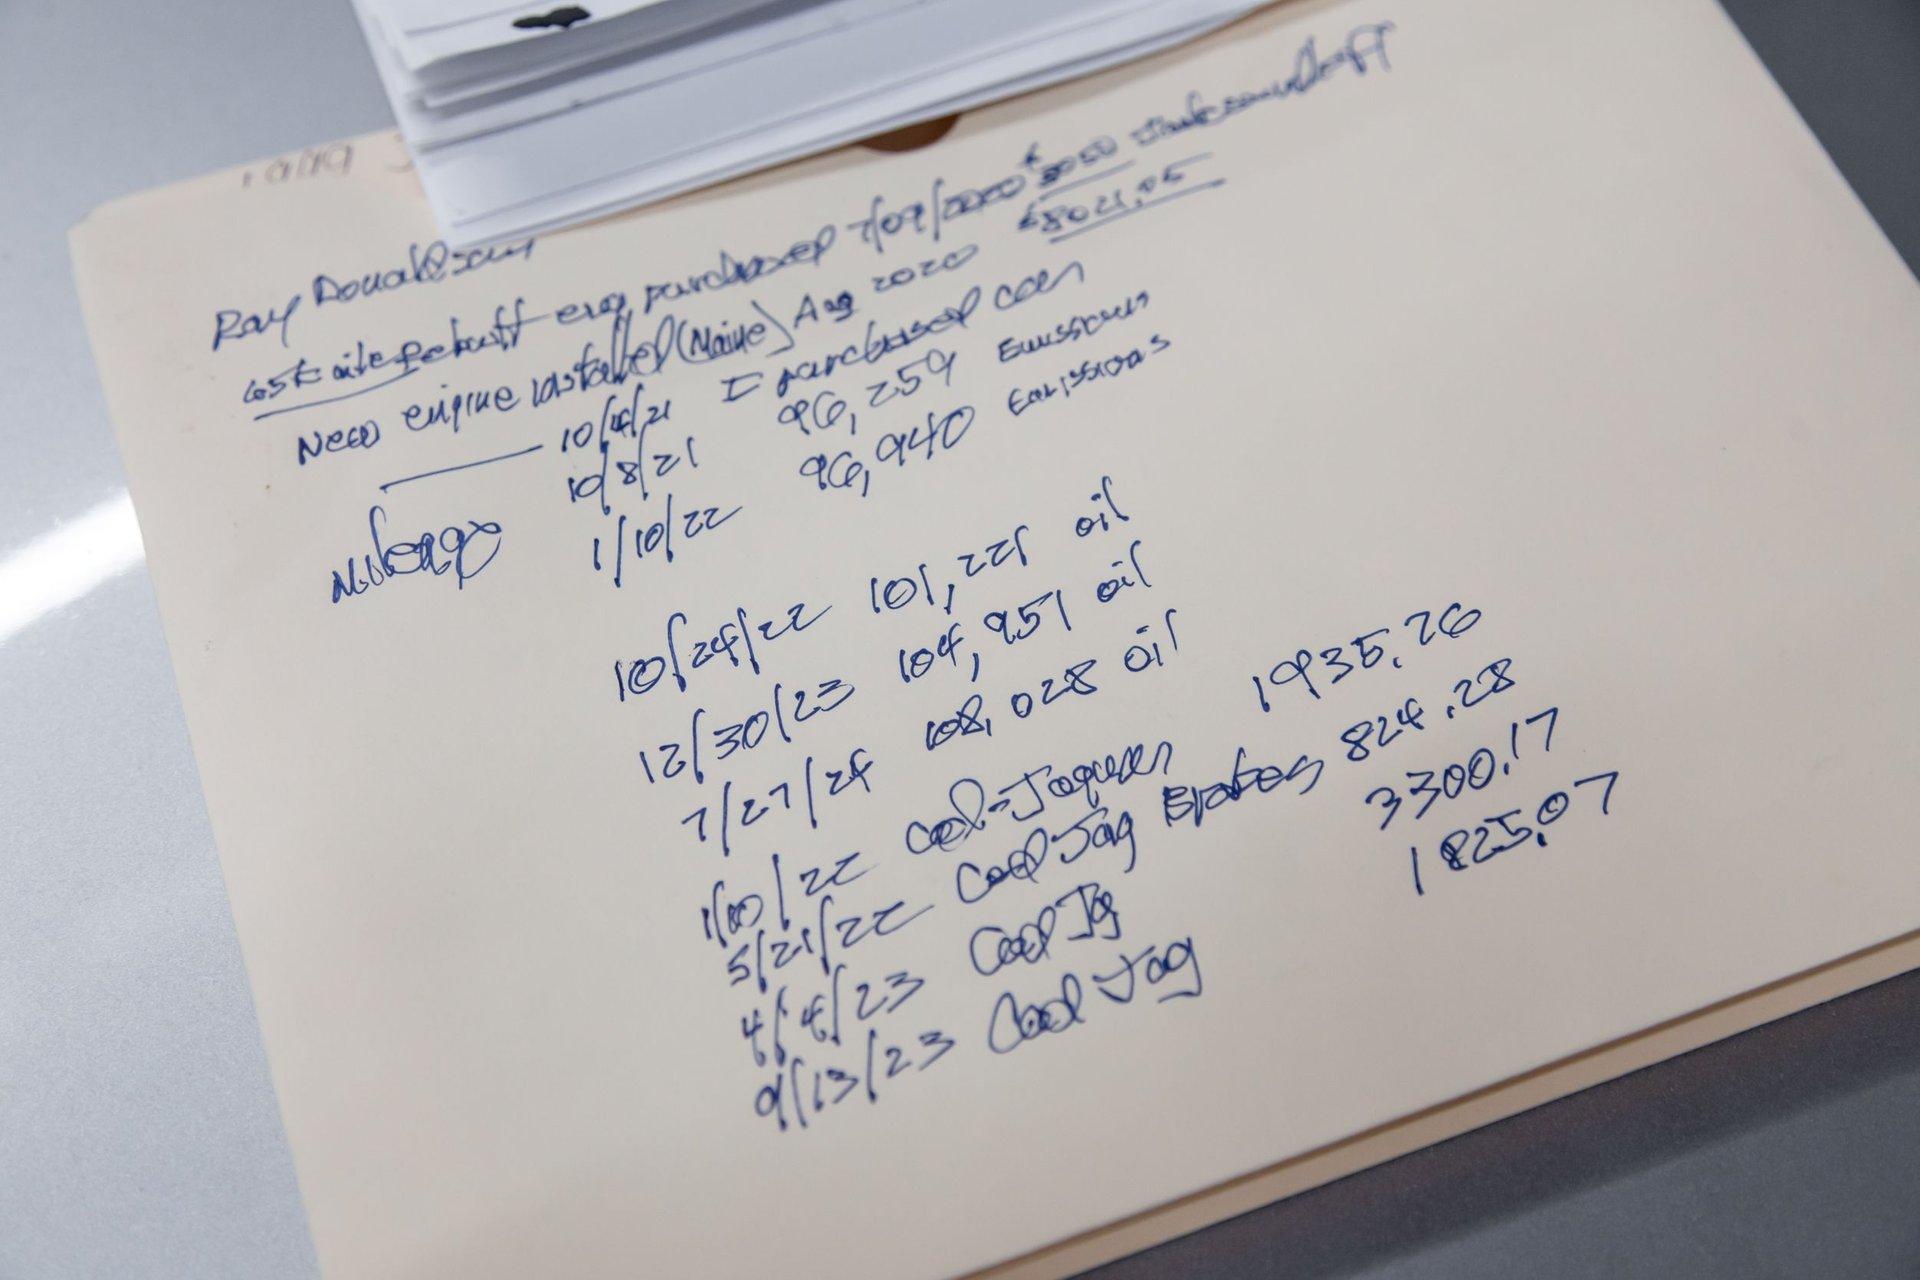 Ray Donaldson
65K mile rebuilt eng purchased 7/09/2020
New engine installed (Maine) Aug 2020 $8021.05
10/4/21 I purchased car
Mileage 10/8/21 96,259 Emissions
1/10/22 96,940 Emissions
10/24/22 101,221 oil
12/30/23 104,951 oil
7/27/24 108,028 oil
1/10/22 Cool-Jaguar 1935.26
5/21/22 Cool Jag Brakes 824.28
4/4/23 Cool Jg 3300.17
9/13/23 Cool Jag 1825.07